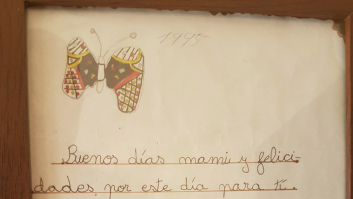 1995
Buenos días mami y felici-
dades por este día para tí.